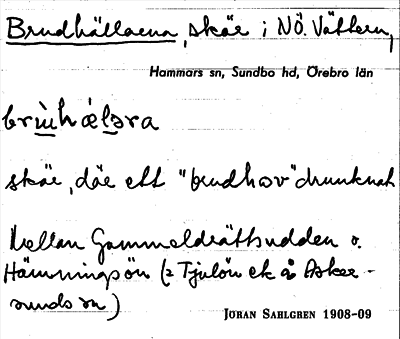 Brudhällarna, skär i NÖ. Vättern,
Hammars sn, Sundbo hd, Örebro län
brùhǽləra
skär, där ett "brudhov" drunknat
Mellan Gammeldrättsudden o.
Hämningsön (2 Tjulön ek å Asker-
sunds sn)
JÖRAN SAHLGREN 1908-09